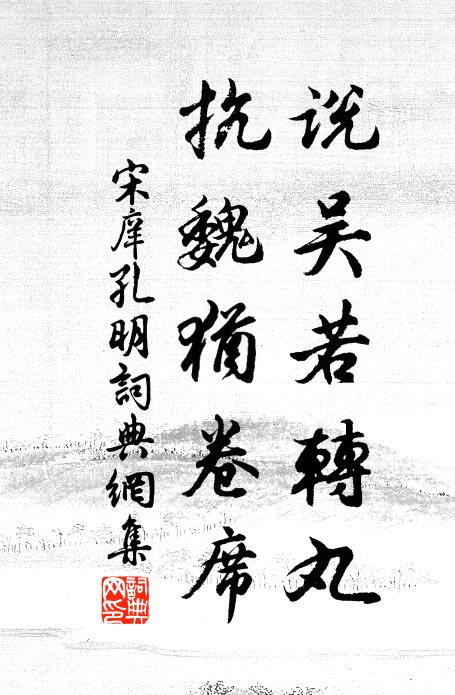 说吴若轉丸
抗魏猶卷席
宋庠孔明詞典網集
詞典网印